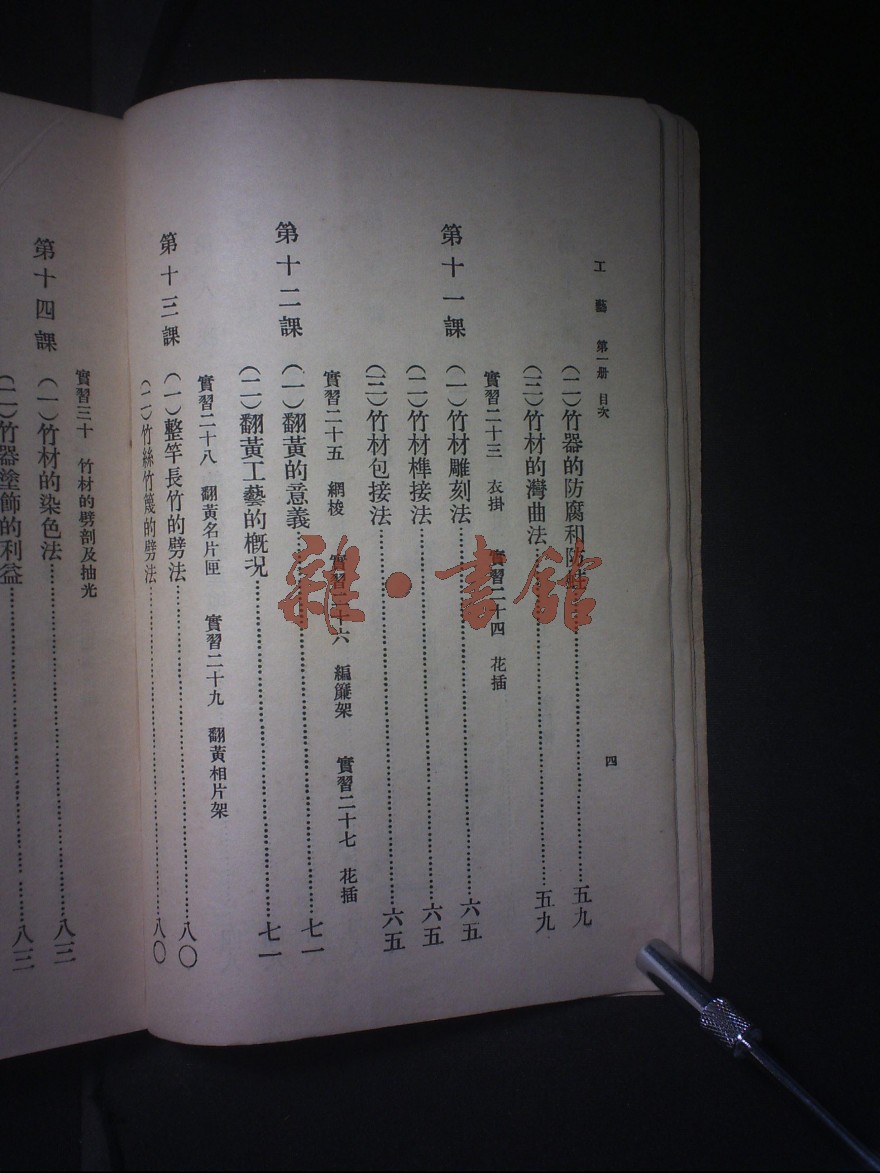 工藝 第一册 目次
四
(二)竹器的防腐和防蛀…………五九
(三)竹材的灣曲法…………五九
實習二十三 衣掛 實習二十四 花插
第十一課 (一)竹材雕刻法…………六五
(二)竹材榫接法…………六五
(三)竹材包接法…………六五
實習二十五 網梭 實習二十六 編簾架 實習二十七 花插
第十二課 (一)翻黃的意義…………七一
(二)翻黃工藝的概况…………七一
實習二十八 翻黃名片匣 實習二十九 翻黃相片架
第十三課 (一)整竿長竹的劈法…………八〇
(二)竹絲竹篾的劈法…………八〇
實習三十 竹材的劈剖及抽光
第十四課 (一)竹材的染色法…………八三
(二)竹器塗飾的利益…………八三
雜·書館